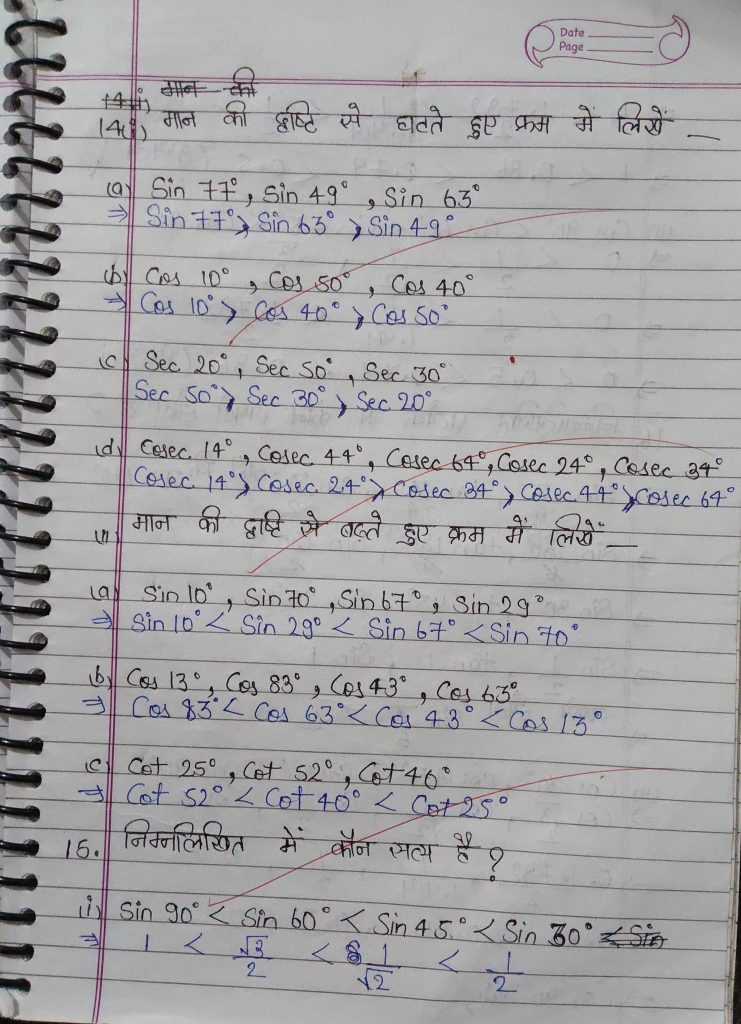 Date
Page
14(i) मान की दृष्टि से घटते हुए क्रम में लिखें —
(a) Sin 77°, Sin 49°, Sin 63°
⇒ Sin 77° > Sin 63° > Sin 49°
(b) Cos 10°, Cos 50°, Cos 40°
⇒ Cos 10° > Cos 40° > Cos 50°
(c) Sec 20°, Sec 50°, Sec 30°
Sec 50° > Sec 30° > Sec 20°
(d) Cosec 14°, Cosec 44°, Cosec 64°, Cosec 24°, Cosec 34°
Cosec 14° > Cosec 24° > Cosec 34° > Cosec 44° > Cosec 64°
(ii) मान की दृष्टि से बढ़ते हुए क्रम में लिखें —
(a) Sin 10°, Sin 70°, Sin 67°, Sin 29°
⇒ Sin 10° < Sin 29° < Sin 67° < Sin 70°
(b) Cos 13°, Cos 83°, Cos 43°, Cos 63°
⇒ Cos 83° < Cos 63° < Cos 43° < Cos 13°
(c) Cot 25°, Cot 52°, Cot 40°
⇒ Cot 52° < Cot 40° < Cot 25°
15. निम्नलिखित में कौन सत्य है ?
(i) Sin 90° < Sin 60° < Sin 45° < Sin 30°
⇒ 1 < √3/2 < 1/√2 < 1/2